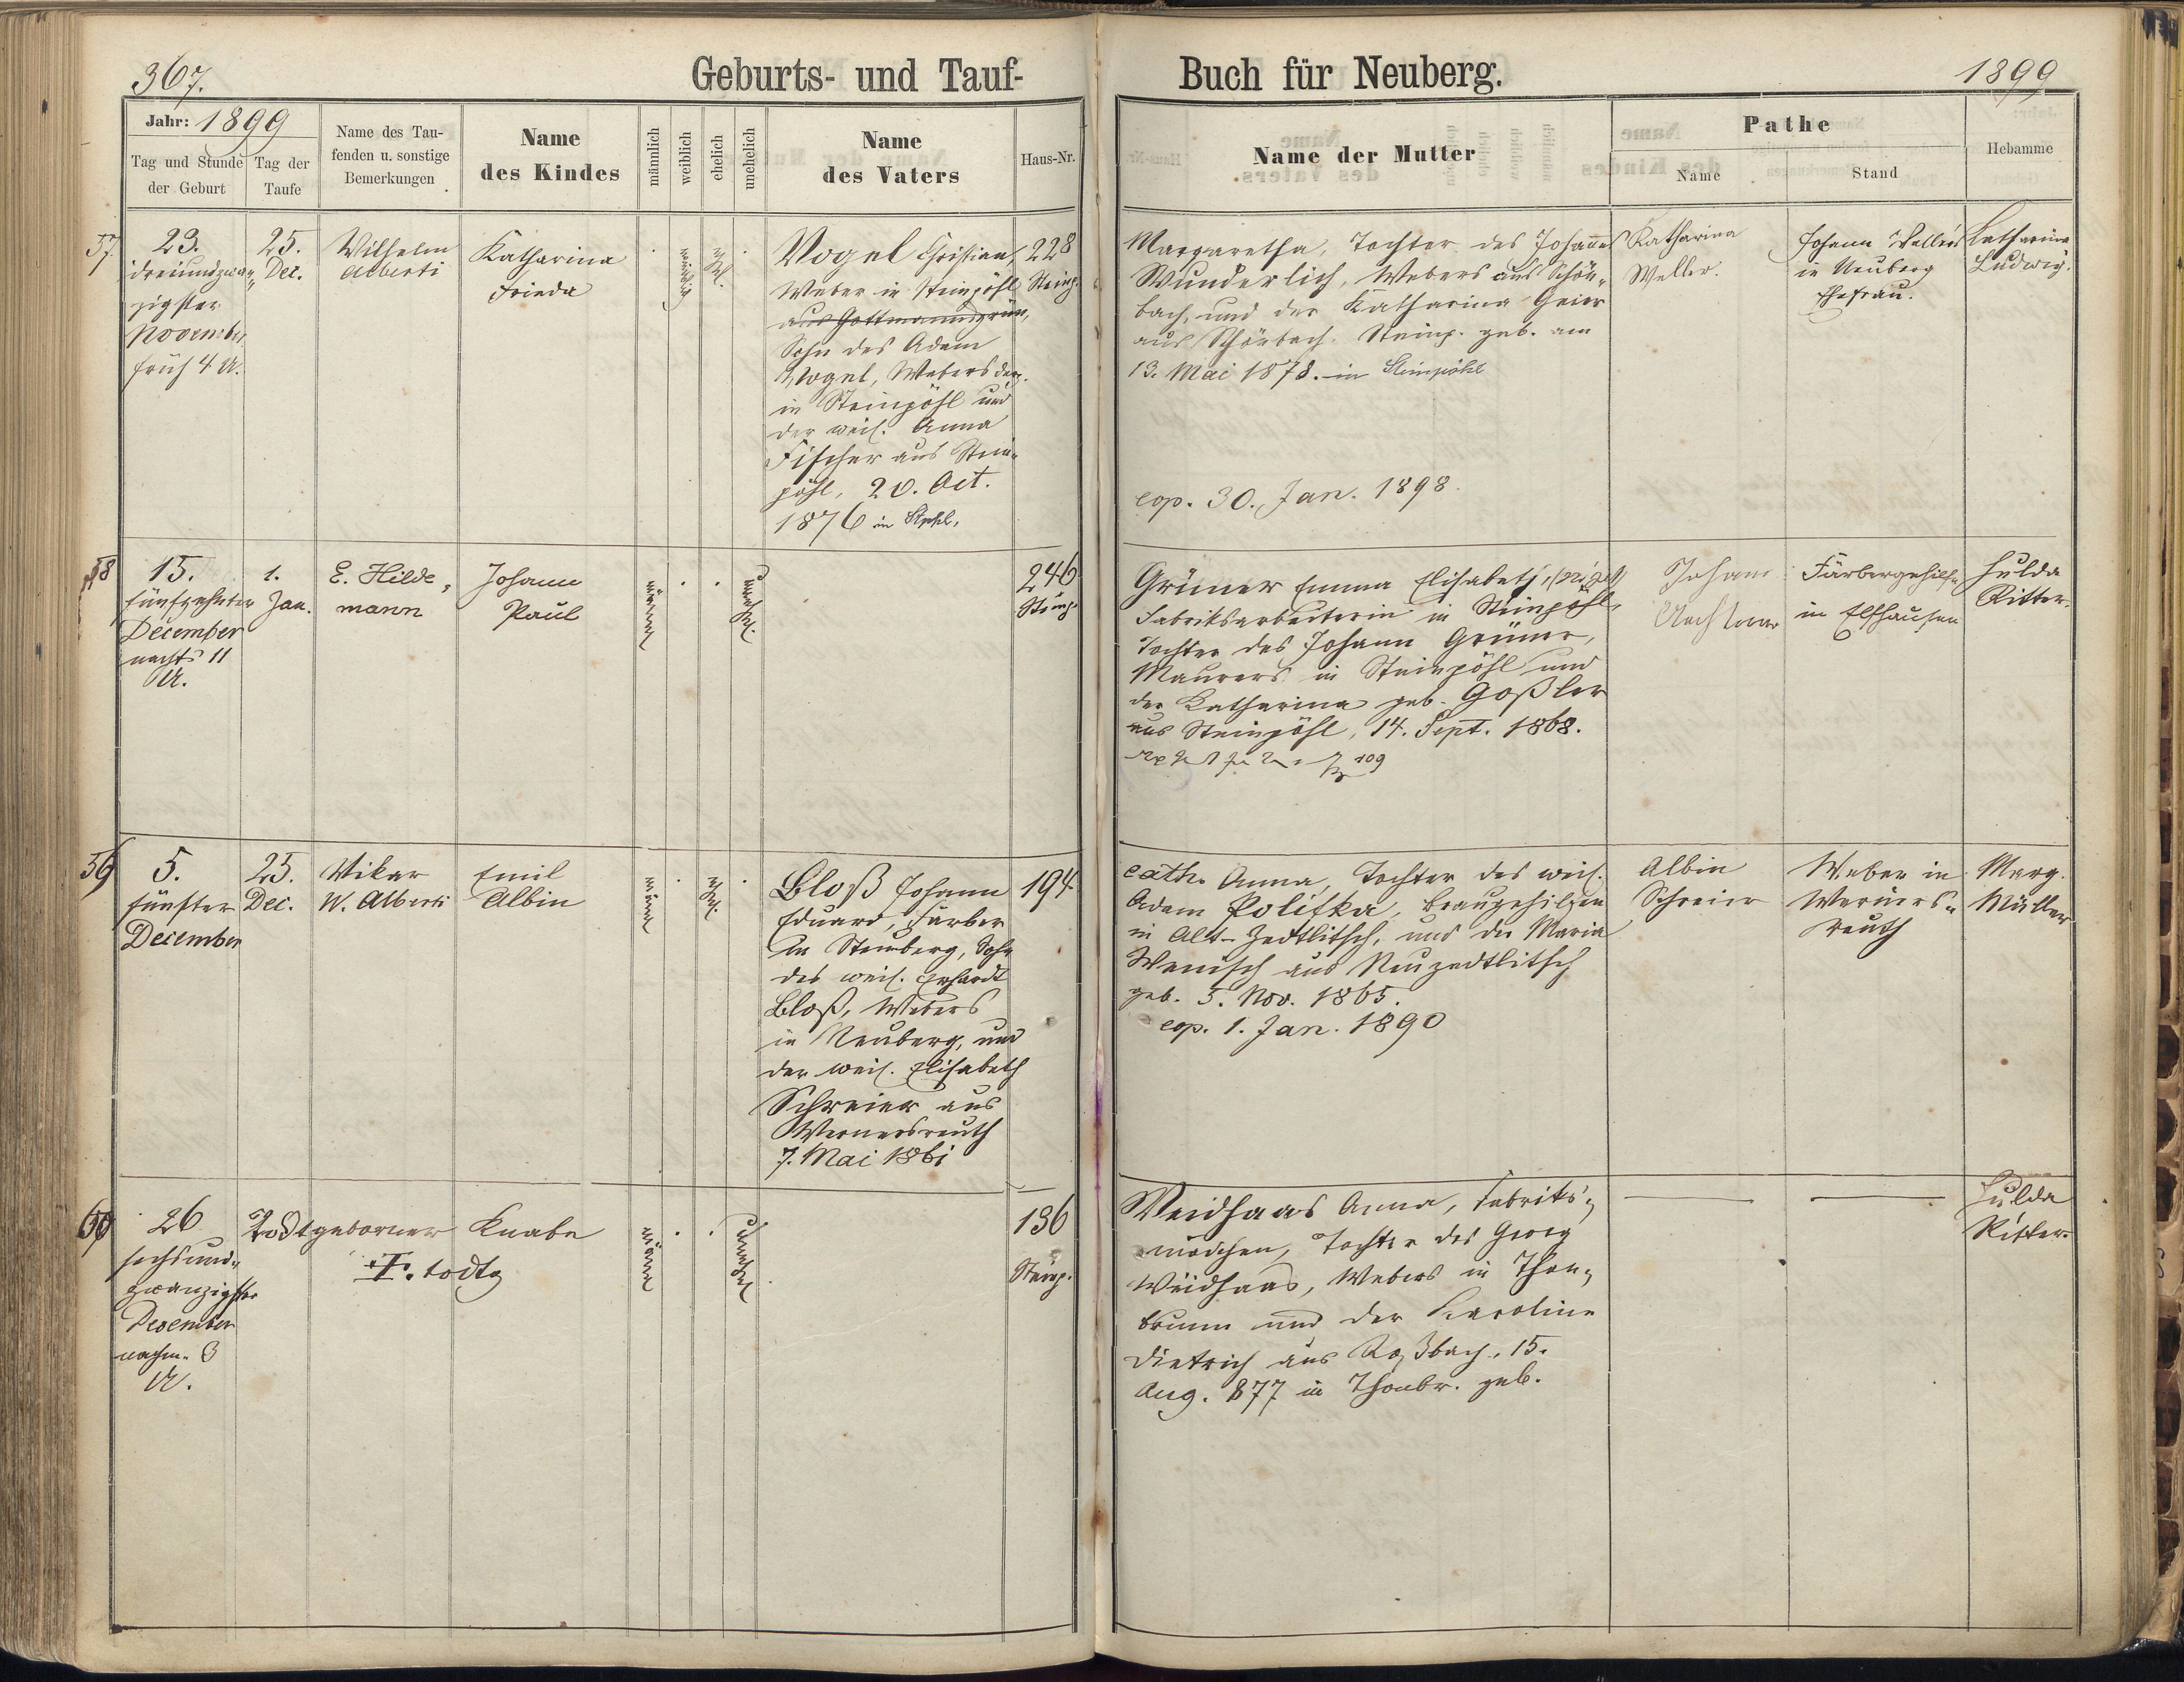 367.
Geburts- und Tauf-
Buch für Neuberg.
1899
Jahr: 1899
Tag und Stunde
der Geburt
Tag der
Taufe
Name des Tau-
fenden u. sonstige
Bemerkungen
Name
des Kindes
männlich
weiblich
ehelich
unehelich
Name
des Vaters
Haus-Nr.
Name der Mutter
Pathe
Name
Stand
Hebamme
57
23.
dreiundzwan„
zigster
November
früh 4 U.
25.
Dec.
Wilhelm
Alberti
Katharina
Frieda
weiblich
ehel.
Vogel Christian,
Weber in Steinpöhl
aus Gottmannsgrün,
Sohn des Adam
Vogel, Webers
in Steinpöhl und
der weil. Anna
Fischer aus Stein-
pöhl, 20. Oct.
1876 in Stphl.
228
Steinp.
Margaretha, Tochter des Johannes
Wunderlich, Webers aus Schön-
bach, und der Katharina Geier
aus Schönbach. Steinp. geb. am
13. Mai 1878. in Steinpöhl
cop. 30. Jan. 1898.
Katharina
Weller.
Johann Weller's
in Neuberg
Ehefrau.
Katharina
Ludwig.
58
15.
fünfzehnter
December
nachts 11
U.
1.
Jan.
E. Hilde-
mann
Johann
Paul
männl.
unehel.
246
Steinp.
Grüner Emma Elisabeth,
Fabriksarbeiterin in Steinpöhl,
Tochter des Johann Grüner,
Maurers in Steinpöhl und
der Katharina geb. Goßler
aus Steinpöhl, 14. Sept. 1868.
109
Johann
Färbergehilfe
in Elfhausen
Hulda
Ritter.
59
5.
fünfter
December
25.
Dec.
Vikar
W. Alberti
Emil
Albin
männl.
ehel.
Bloß Johann
Eduard, Färber
in Steinberg, Sohn
des weil. Erhardt
Bloß, Webers
in Neuberg, und
der weil. Elisabeth
Schreier aus
Wernersreuth
7. Mai 1861
194
cath. Anna, Tochter des weil.
Adam Politka, Braugehilfen
in Alt-Zedtlitsch, und der Maria
Wenisch aus Neuzedtlitsch
geb. 5. Nov. 1865.
cop. 1. Jan. 1890
Albin
Schreier
Weber in
Werners-
reuth
Marg.
Müller
60
26
sechsund-
zwanzigster
Dezember
nachm. 3
U.
Todtgeborner Knabe
I. todtg
männl.
unehel.
136
Steinp.
Weidhaas Anna, Fabriks-
mädchen, Tochter des Georg
Weidhaas, Webers in Thon-
brunn und der Karoline
Dietrich aus Roßbach, 15.
Aug. 877 in Thonbr. geb.
Hulda
Ritter.